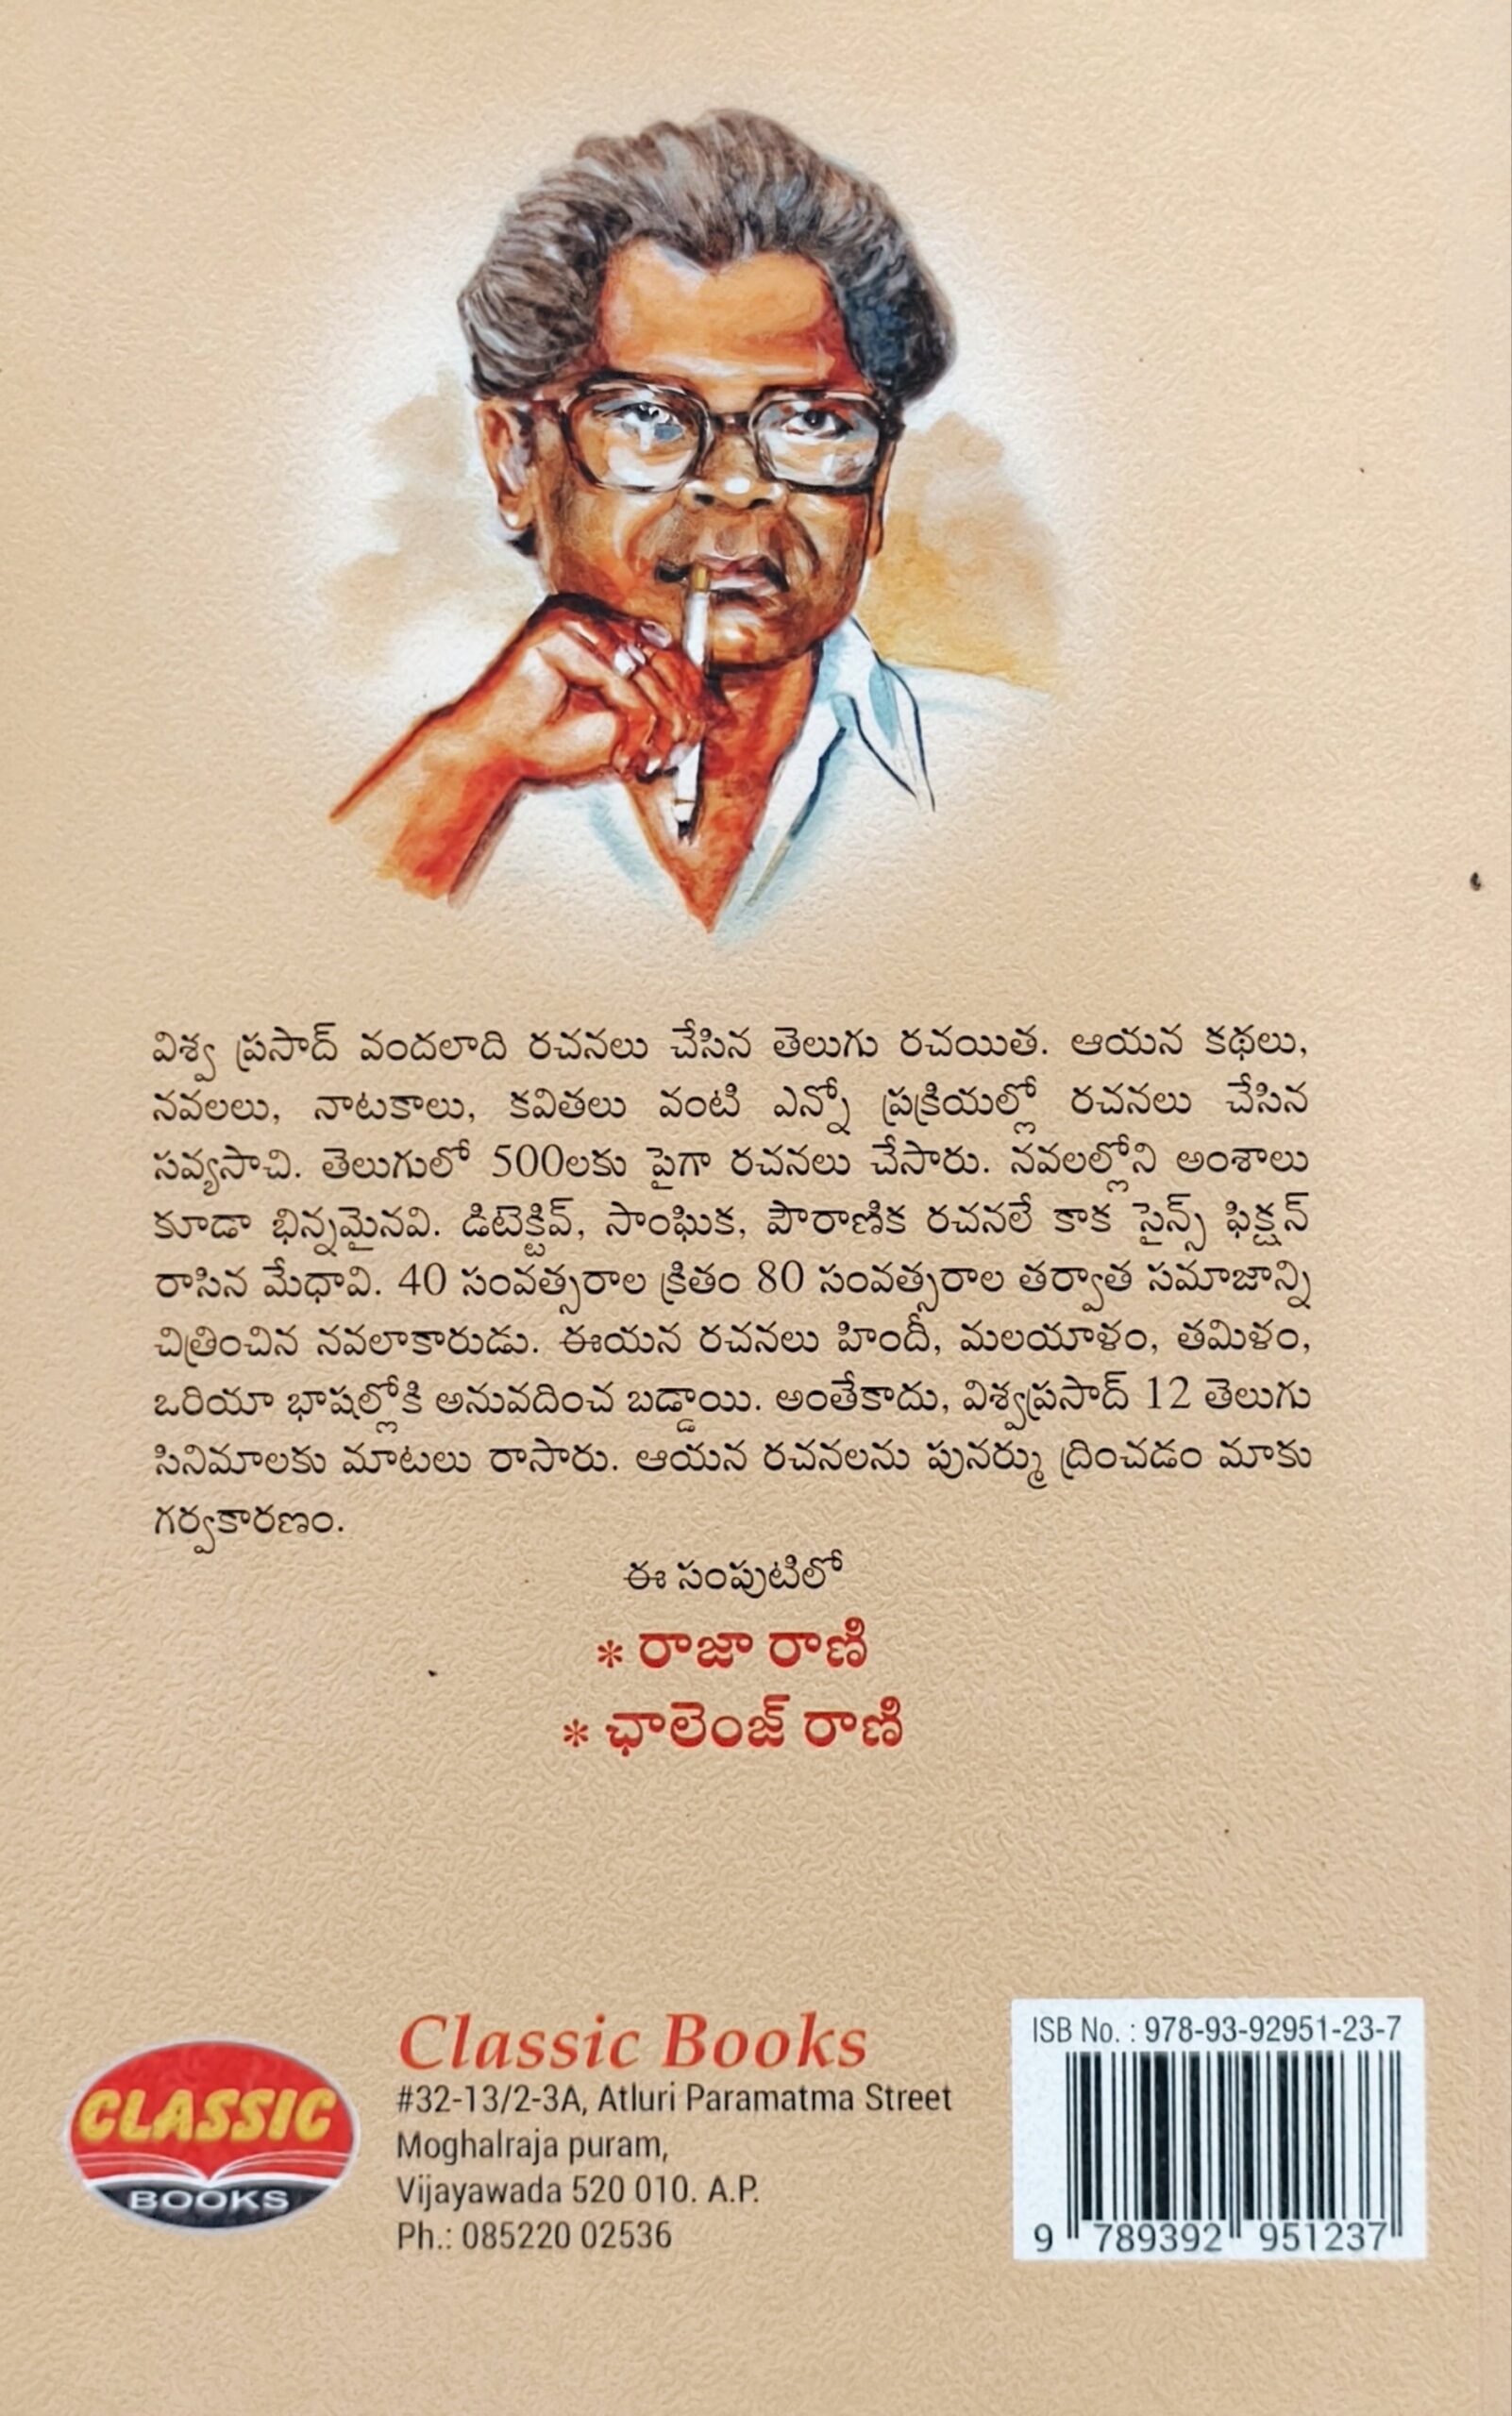 విశ్వ ప్రసాద్ వందలాది రచనలు చేసిన తెలుగు రచయిత. ఆయన కథలు,
నవలలు, నాటకాలు, కవితలు వంటి ఎన్నో ప్రక్రియల్లో రచనలు చేసిన
సవ్యసాచి. తెలుగులో 500లకు పైగా రచనలు చేసారు. నవలల్లోని అంశాలు
కూడా భిన్నమైనవి. డిటెక్టివ్, సాంఘిక, పౌరాణిక రచనలే కాక సైన్స్ ఫిక్షన్
రాసిన మేధావి. 40 సంవత్సరాల క్రితం 80 సంవత్సరాల తర్వాత సమాజాన్ని
చిత్రించిన నవలాకారుడు. ఈయన రచనలు హిందీ, మలయాళం, తమిళం,
ఒరియా భాషల్లోకి అనువదించ బడ్డాయి. అంతేకాదు, విశ్వప్రసాద్ 12 తెలుగు
సినిమాలకు మాటలు రాసారు. ఆయన రచనలను పునర్ము ద్రించడం మాకు
గర్వకారణం.
ఈ సంపుటిలో
* రాజా రాణి
* ఛాలెంజ్ రాణి
CLASSIC
BOOKS
Classic Books
#32-13/2-3A, Atluri Paramatma Street
Moghalraja puram,
Vijayawada 520 010. A.P.
Ph.: 085220 02536
ISB No. : 978-93-92951-23-7
9 789392 951237